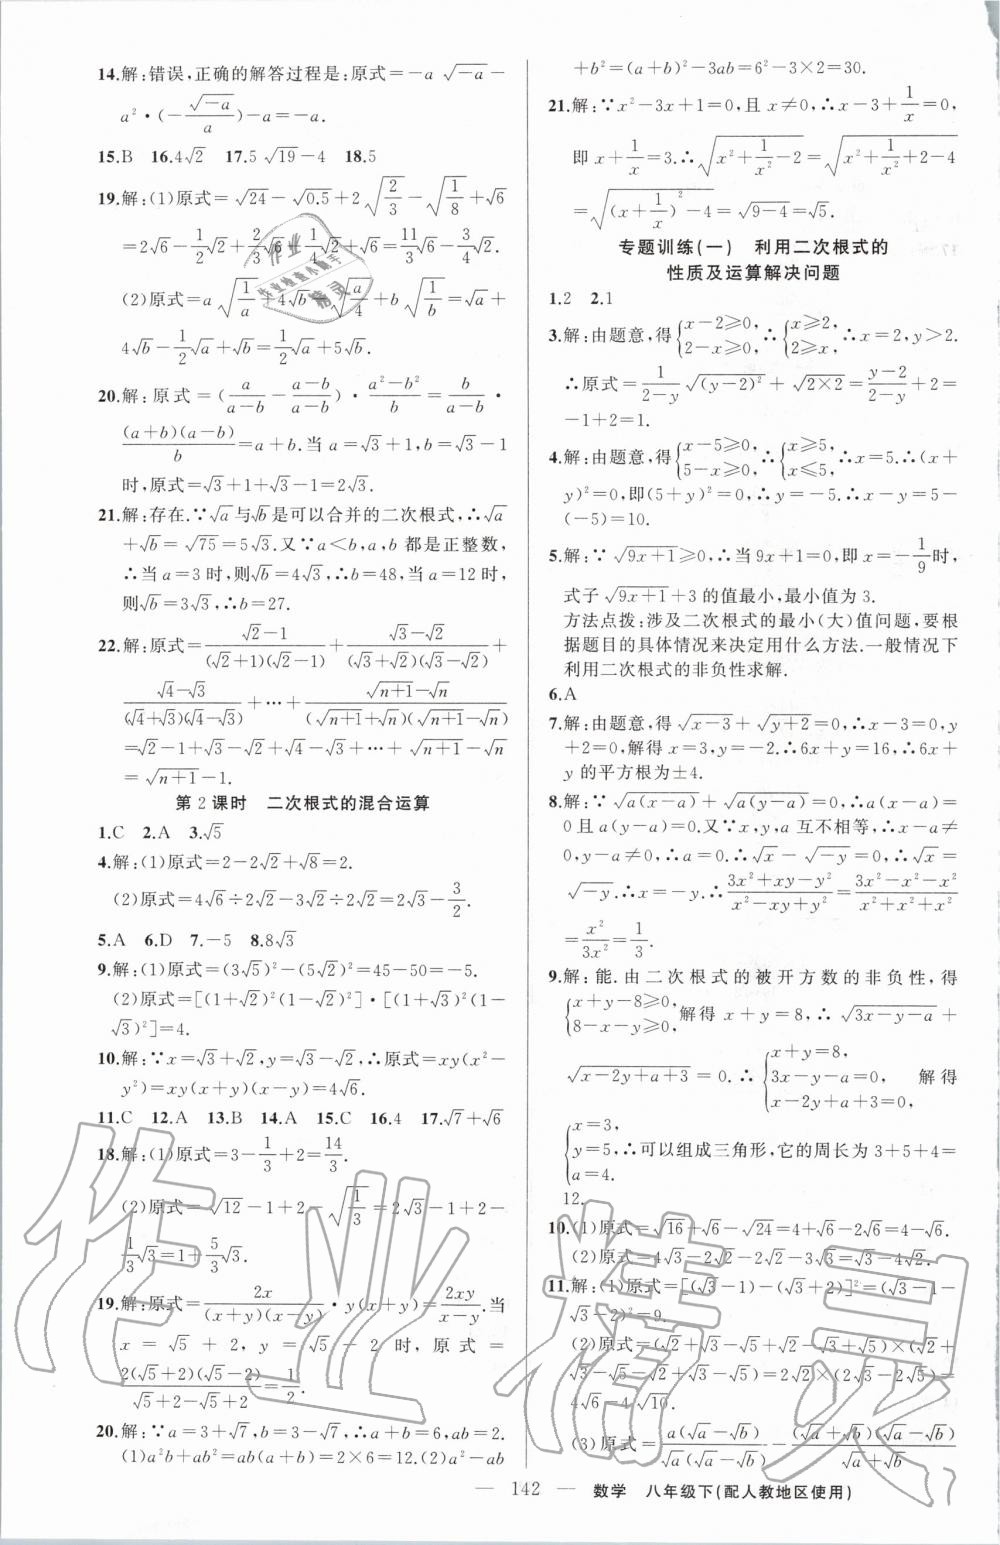 14.解:错误,正确的解答过程是:原式=-a√(-a)-
a²·(-√(-a)/a)-a=-a.
15.B 16.4√2 17.5√19-4 18.5
19.解:(1)原式=√24-√0.5+2√(2/3)-√(1/8)+√6
=2√6-1/2√2+2/3√6-1/4√2+√6=11/3√6-3/4√2.
(2)原式=a√(1/a)+4√b-√(a/4)+b√(1/b)=√a+
4√b-1/2√a+√b=1/2√a+5√b.
20.解:原式=(a/(a-b)-(a-b)/(a-b))·(a²-b²)/b=b/(a-b)·
(a+b)(a-b)/b=a+b.当a=√3+1,b=√3-1
时,原式=√3+1+√3-1=2√3.
21.解:存在.∵√a与√b是可以合并的二次根式,∴√a
+√b=√75=5√3.又∵a<b,a,b都是正整数,
∴当a=3时,则√b=4√3,∴b=48,当a=12时,
则√b=3√3,∴b=27.
22.解:原式=(√2-1)/((√2+1)(√2-1))+(√3-√2)/((√3+√2)(√3-√2))+
(√4-√3)/((√4+√3)(√4-√3))+…+(√(n+1)-√n)/((√(n+1)+√n)(√(n+1)-√n))
=√2-1+√3-√2+√4-√3+…+√(n+1)-√n
=√(n+1)-1.
第2课时 二次根式的混合运算
1.C 2.A 3.√5
4.解:(1)原式=2-2√2+√8=2.
(2)原式=4√6÷2√2-3√2÷2√2=2√3-3/2.
5.A 6.D 7.-5 8.8√3
9.解:(1)原式=(3√5)²-(5√2)²=45-50=-5.
(2)原式=[(1+√2)²(1-√2)²]·[(1+√3)²(1-
√3)²]=4.
10.解:∵x=√3+√2,y=√3-√2,∴原式=xy(x²-
y²)=xy(x+y)(x-y)=4√6.
11.C 12.A 13.B 14.A 15.C 16.4 17.√7+√6
18.解:(1)原式=3-1/3+2=14/3.
(2)原式=√12-1+2-√(1/3)=2√3-1+2-
1/3√3=1+5/3√3.
19.解:原式=2x/((x+y)(x-y))·y(x+y)=2xy/(x-y).当
x=√5+2,y=√5-2时,原式=
2(√5+2)(√5-2)/(√5+2-√5+2)=1/2.
20.解:∵a=3+√7,b=3-√7,∴a+b=6,ab=2.
(1)a²b+ab²=ab(a+b)=2×6=12.(2)a²-ab
+b²=(a+b)²-3ab=6²-3×2=30.
21.解:∵x²-3x+1=0,且x≠0,∴x-3+1/x=0,
即x+1/x=3.∴√(x²+1/x²-2)=√(x²+1/x²+2-4)
=√((x+1/x)²-4)=√(9-4)=√5.
专题训练(一) 利用二次根式的
性质及运算解决问题
1.2 2.1
3.解:由题意,得{x-2≥0,2-x≥0,∴{x≥2,2≥x,∴x=2,y>2.
∴原式=1/(2-y)√((y-2)²)+√(2×2)=(y-2)/(2-y)+2=
-1+2=1.
4.解:由题意,得{x-5≥0,5-x≥0,∴{x≥5,x≤5,∴x=5.∴(x+
y)²=0,即(5+y)²=0,∴y=-5.∴x-y=5-
(-5)=10.
5.解:∵√(9x+1)≥0,∴当9x+1=0,即x=-1/9时,
式子√(9x+1)+3的值最小,最小值为3.
方法点拨:涉及二次根式的最小(大)值问题,要根
据题目的具体情况来决定用什么方法.一般情况下
利用二次根式的非负性求解.
6.A
7.解:由题意,得√(x-3)+√(y+2)=0,∴x-3=0,y
+2=0,解得x=3,y=-2.∴6x+y=16,∴6x+
y的平方根为±4.
8.解:∵√(a(x-a))+√(a(y-a))=0,∴a(x-a)=
0且a(y-a)=0.又∵x,y,a互不相等,∴x-a≠
0,y-a≠0,∴a=0.∴√x-√(-y)=0,∴√x=
√(-y).∴x=-y.∴(3x²+xy-y²)/(x²-xy+y²)=(3x²-x²-x²)/(x²+x²+x²)
=x²/3x²=1/3.
9.解:能.由二次根式的被开方数的非负性,得
{x+y-8≥0,8-x-y≥0,解得x+y=8,∴√(3x-y-a)+
√(x-2y+a+3)=0.∴{x+y=8,3x-y-a=0,x-2y+a+3=0,解得
{x=3,y=5,a=4.∴可以组成三角形,它的周长为3+5+4=
12.
10.(1)原式=√16+√6-√24=4+√6-2√6=4-√6.
(2)原式=4√3-2√2-2√2-3√3=√3-4√2.
11.解:(1)原式=[(√3-1)-(√3+2)]²=(√3-1
-√3-2)²=9.
(2)原式=(√2+√3-√5+√2-√3+√5)×(√2+
√3-√5-√2+√3-√5)=2√2×(2√3-2√5)=
4√6-4√10.
(3)原式=a(√a-√b)/(√a(√a-√b))-(√a+√b)(√a-√b)/(√a+√b)
— 142 — 数学 八年级下(配人教地区使用)
作业
作业检查小助手
精灵
作业精灵